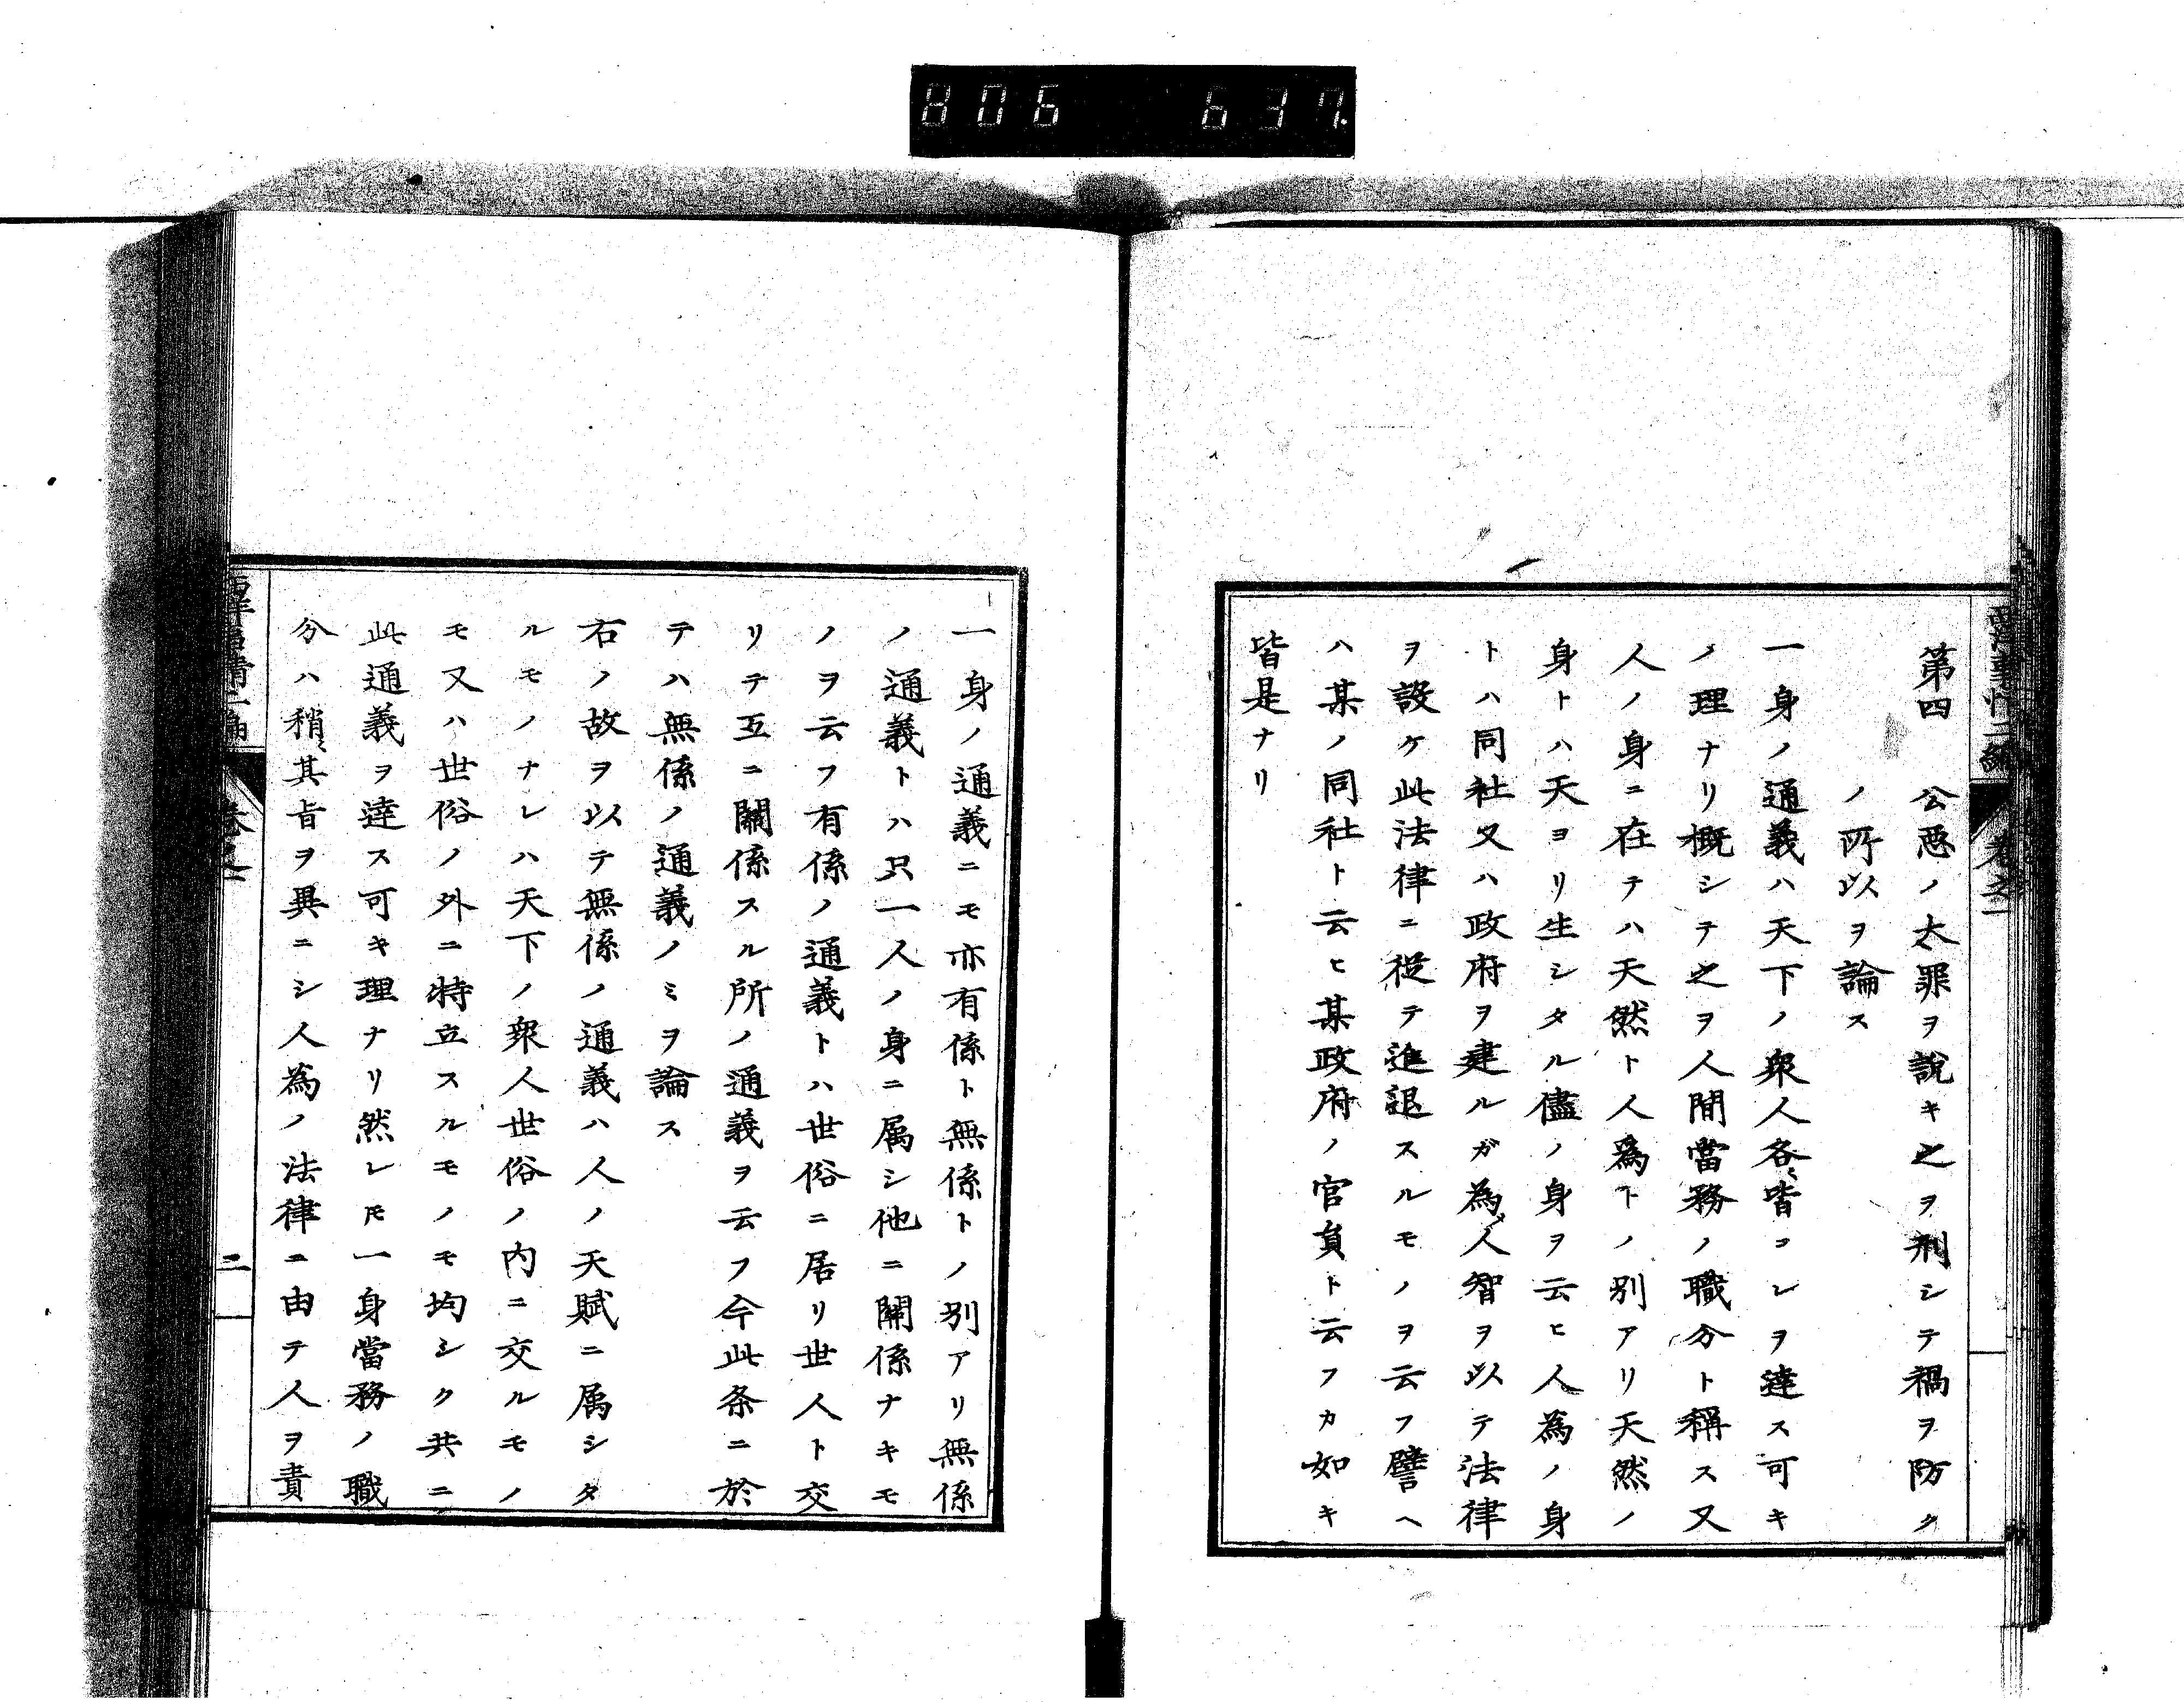 806 637
西洋事情二編 巻之一
第四 公惡ノ大罪ヲ說キ之ヲ刑シテ禍ヲ防ク
ノ所以ヲ論ス
一身ノ通義ハ天下ノ衆人各〻皆コレヲ達ス可キ
ノ理ナリ概シテ之ヲ人間當務ノ職分ト稱ス又
人ノ身ニ在テハ天然ト人爲トノ別アリ天然ノ
身トハ天ヨリ生シタル儘ノ身ヲ云ヒ人為ノ身
トハ同社又ハ政府ヲ建ルガ為〆人智ヲ以テ法律
ヲ設ケ此法律ニ從テ進退スルモノヲ云フ譬ヘ
ハ某ノ同社ト云ヒ某政府ノ官員ト云フカ如キ
皆是ナリ
一身ノ通義ニモ亦有係ト無係トノ別アリ無係
ノ通義トハ只一人ノ身ニ属シ他ニ關係ナキモ
ノヲ云フ有係ノ通義トハ世俗ニ居リ世人ト交
リテ互ニ關係スル所ノ通義ヲ云フ今此条ニ於
テハ無係ノ通義ノミヲ論ス
右ノ故ヲ以テ無係ノ通義ハ人ノ天賦ニ属シタ
ルモノナレハ天下ノ衆人世俗ノ内ニ交ルモノ
モ又ハ世俗ノ外ニ特立スルモノモ均シク共ニ
此通義ヲ達ス可キ理ナリ然レ𪜈一身當務ノ職
分ハ稍〻其旨ヲ異ニシ人為ノ法律ニ由テ人ヲ責
二